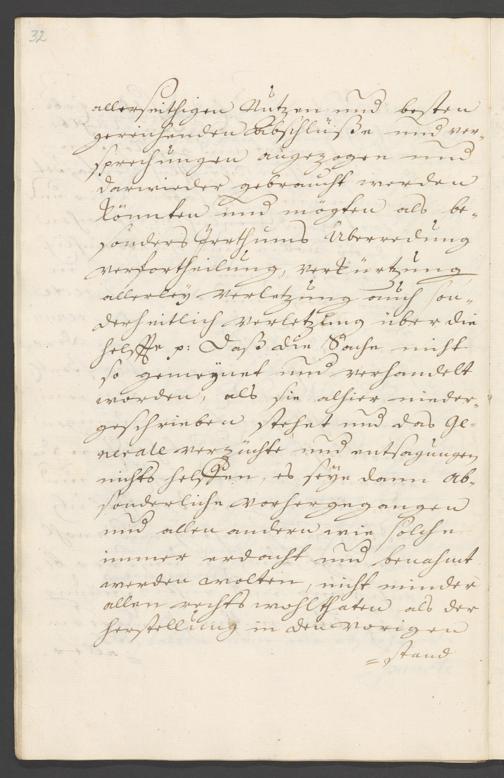 32
allerseithigen Nutzen und besten
gereichenden Abschlüße und ver-
sprechungen angezogen und
darwieder gebraucht werden
könnten und mögten als be-
sonders Irrthums Überredung
verfortheilung, verkürtzung
allerley verletzung auch son-
derheitlich verletzung über die
helffte p: Daß die Sache nicht
so gemeynet und verhandelt
worden, als sie alhier nieder-
geschrieben stehet und das Ge-
nerale verzüchte und entsagungen
nichts helffen, es seye dann ab-
sonderliche vorhergegangen
und allen andern wie solche
immer erdacht und benahmt
werden wolten, nicht minder
allen rechts wohlthaten als der
herstellung in den vorigen
=stand